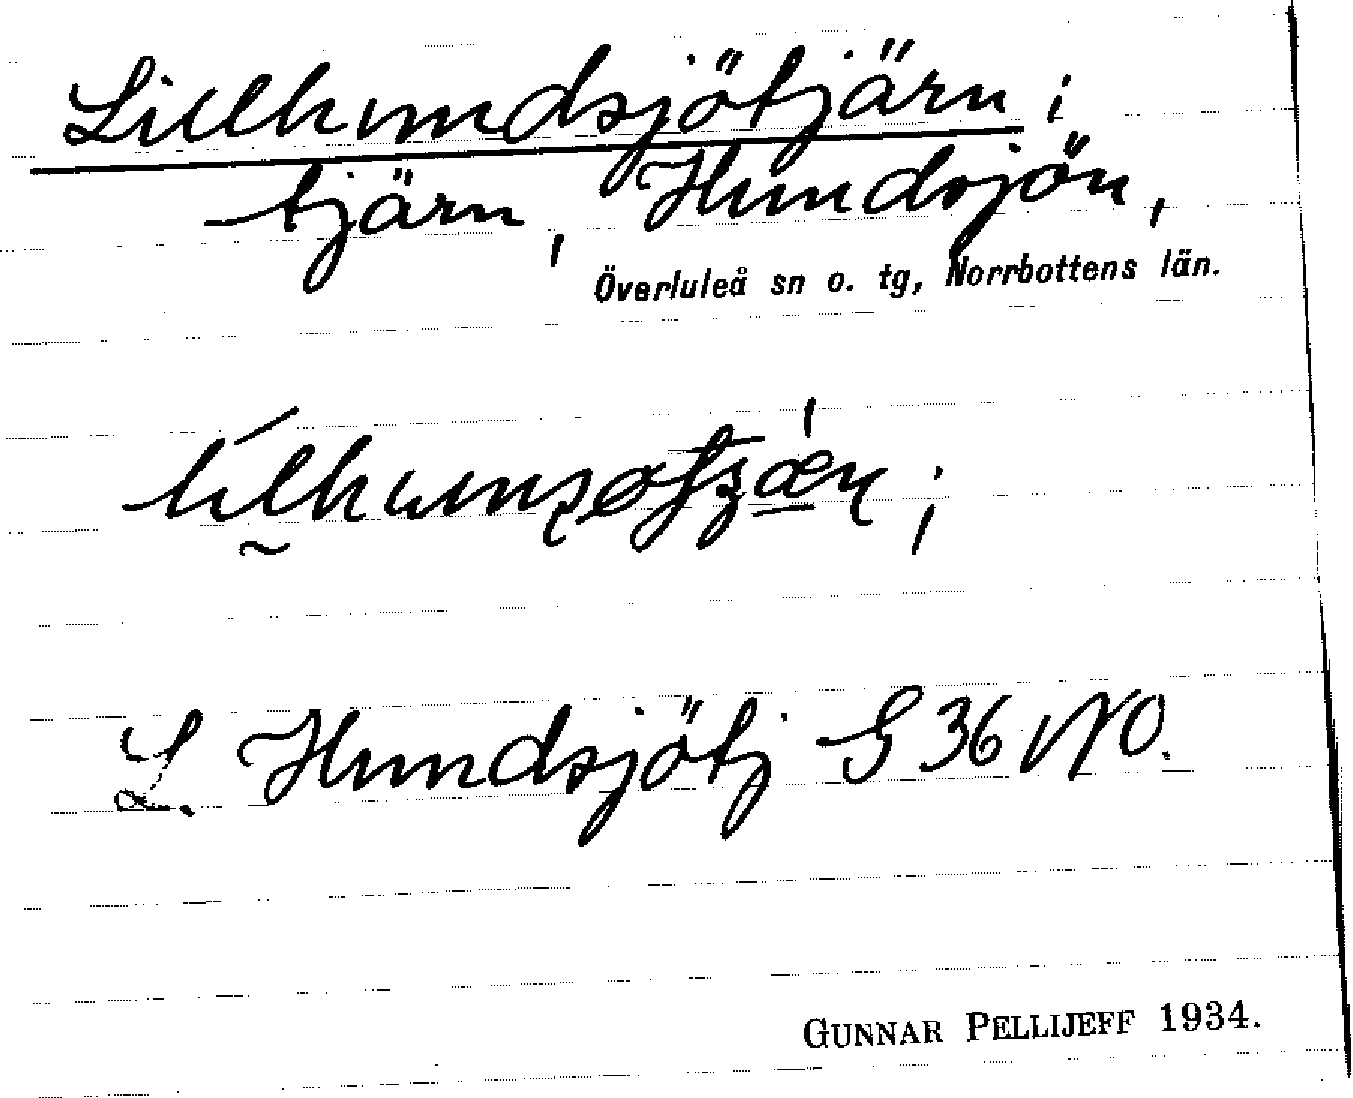 Lillhundsjötjärn;
tjärn, Hundsjön,
Överluleå sn o. tg, Norrbottens län.
L. Hundsjötj G 36 NO.
GUNNAR PELLIJEFF 1934.